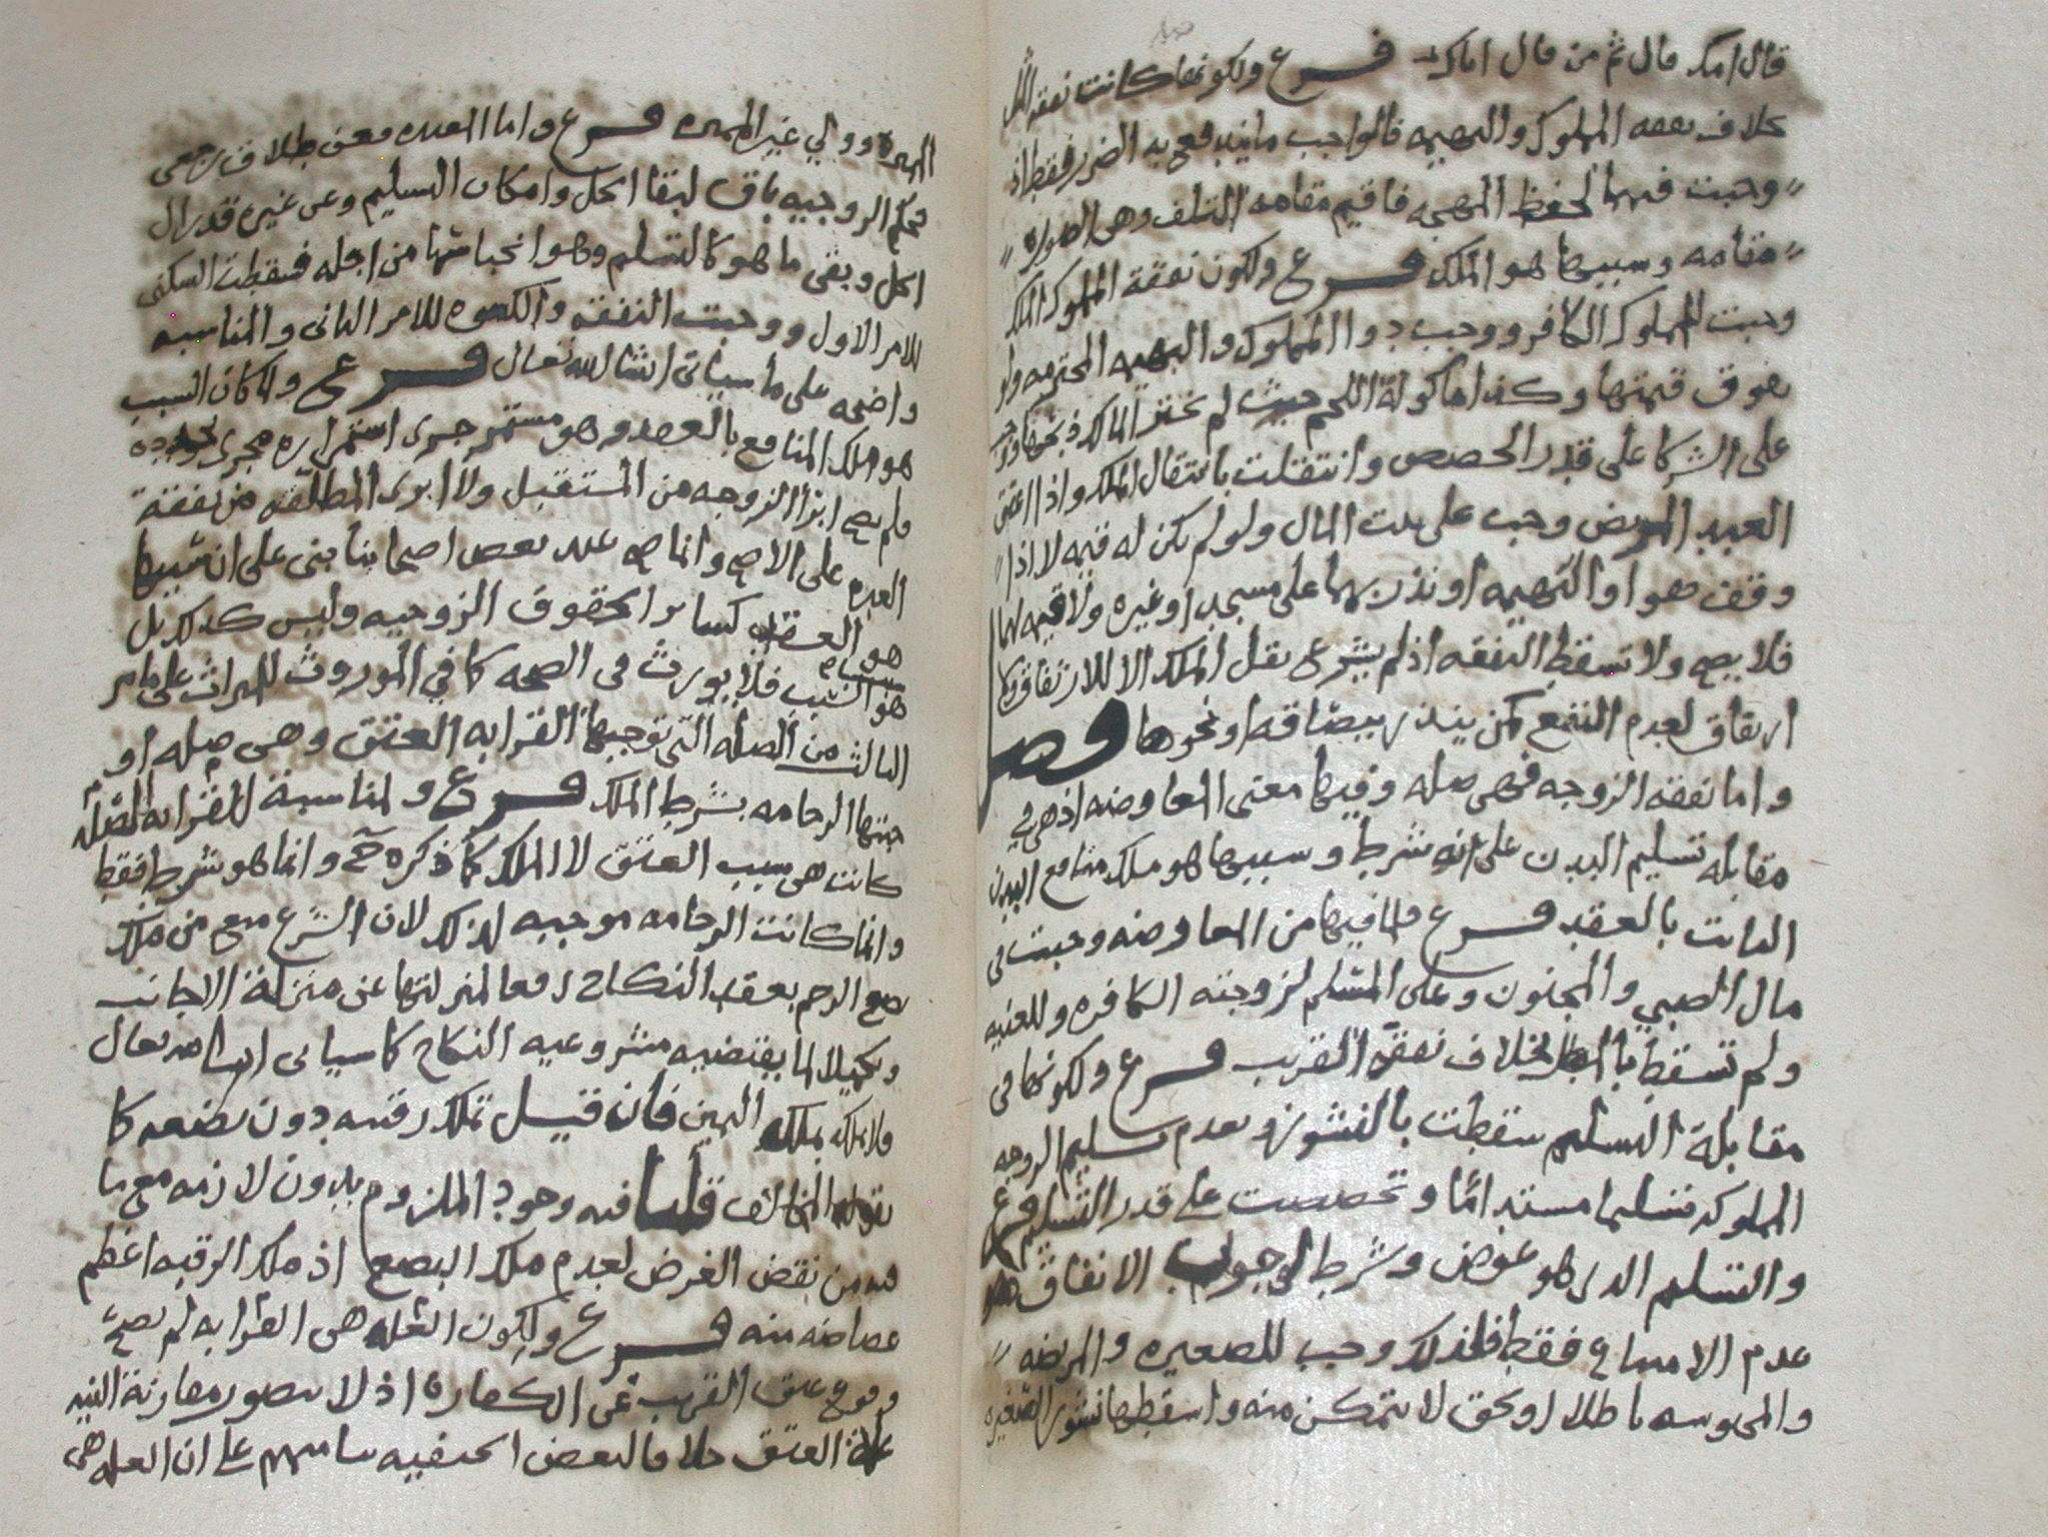 قال امك قال ثم من قال اباك فرع ولكونها كانت نفقة المثل
بخلاف نفقه المملوك والبهيمه فالواجب ما يندفع به الضرر فقط اذ
وجبت فيها لحفظ المهجه فاقيم مقامه التلف وهي الصوره
مقامه وسببها هو الملك فرع ولكون نفقة المملوك الملك
وجبت للمملوك الكافر ووجب دوا المملوك والبهيمه المحترمه ولو
بفوق قيمتها وكذا ماكولة اللحم حيث لم يختر المالك ذبحها ووجب
على الشركا على قدر الحصص وانتقلت بانتقال الملك واذا اعتق
العبد المريض وجب على بيت المال ولو لم يكن له قيمه لا اذا
وقف هو او البهيمه او نذر بهما على مسجد او غيره ولا قيمه لهما
فلا يصح ولا تسقط النفقه اذ لم يشرع نقل الملك الا للارتفاق ولا
ارتفاق لعدم النفع كمن ينذر ببصاقه او نحوها فصل
واما نفقه الزوجه فهي صله وفيها معنى المعاوضه اذ هي في
مقابله تسليم البدن على انه شرط وسببها هو ملك منافع البدن
الثابت بالعقد فرع ولما فيها من المعاوضه وجبت في
مال الصبي والمجنون وعلى المسلم لزوجته الكافره وللغنيه
ولم تسقط بالمطل بخلاف نفقة القريب فرع ولكونها في
مقابلة التسليم سقطت بالنشوز وبعدم تسليم الزوجه
المملوكه تسليما مستداما وتحصصت على قدر التسليم فرع
والتسليم الذي هو عوض وشرط لوجوب الانفاق هو
عدم الامتناع فقط فلذلك وجب للصغيره والمريضه
والمحبوسه باطلا او بحق لا يتمكن منه واسقطها نشوز الصغيره
المميزه وولي غير المميزه فرع واما العده فعن طلاق رجعي
حكم الزوجيه باق لبقا الحل وامكان التسليم وعن غيره قد زال
الحل وبقي ما هو كالتسليم وهو انحباسها من اجله فسقطت السكنى
للامر الاول ووجبت النفقه والكسوه للامر الثاني والمناسبه
واضحه على ما سياتي انشا الله تعالى فرع ولما كان السبب
هو ملك المنافع بالعقد وهو مستمر جرى استمراره مجرى تجدده
فلم يصح ابرا الزوجه من المستقبل ولا ابرى المطلقه من نفقة
العده على الاصح وانما صح عند بعض اصحابنا بنى على ان سببها
هو العقد كساير الحقوق الزوجيه وليس كذلك بل
هو السبب فلا يورث في الصحه كما في الموروث للميراث على ما مر
الثالث من الصله التي توجبها القرابه العتق وهي صله او
جبتها الرحامه بشرط الملك فرع ولمناسبة للقرابه الصله
كانت هي سبب العتق لا الملك كما ذكره وانما هو شرط فقط
وانما كانت الرحامه موجبه لذلك لان الشرع منع من ملك
بضع الرحم بعقد النكاح رفعا لمنزلتها عن منزلة الاجانب
وتكميلا لما يقتضيه مشروعيه النكاح كما سياتي انشا الله تعالى
ولا ملكه بملك اليمين فان قيل تملك رقبته دون بضعه كما
تقوله المخالف قلنا فيه وجود الملزوم بدون لازمه مع ما
فيه من نقض الغرض لعدم ملك البضع اذ ملك الرقبه اعظم
غضاضه منه فرع ولكون العله هي القرابه لم يصح
وقوع عتق القريب عن الكفاره اذ لا يتصور مقارنة النيه
علة العتق خلافا لبعض الحنفيه بنا منهم على ان العله هي